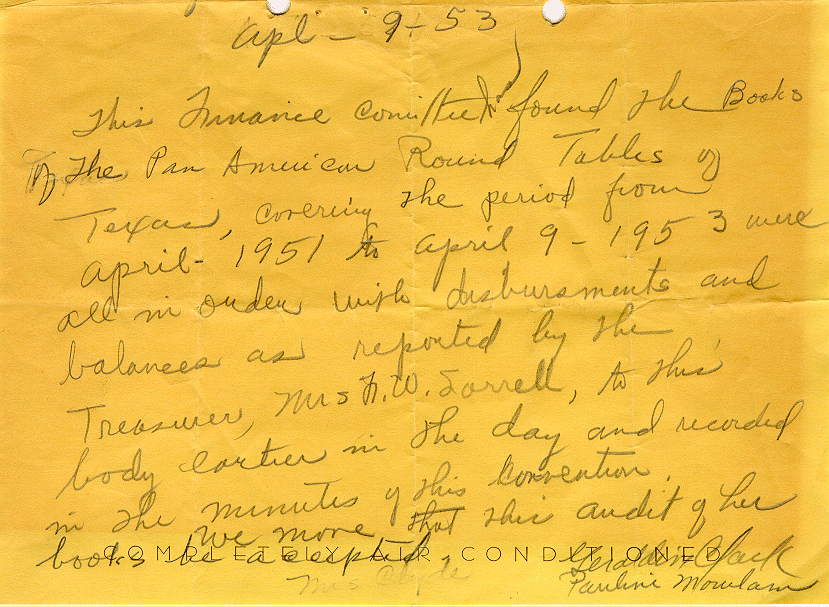 Apl - 9 - 53
This Finance comittee found the Books
of the Pan American Round Tables of
Texas, covering the period from
April - 1951 to April 9 - 1953 were
all in order with disbursments and
balances as reported by the
Treasurer, Mrs H. W. Sorrell, to this
body earlier in the day and recorded
in the minutes of this Convention.
We move that this audit of her
books be accepted.
COMPLETELY AIR CONDITIONED
Geraldine Clack
Mrs Clyde
Pauline